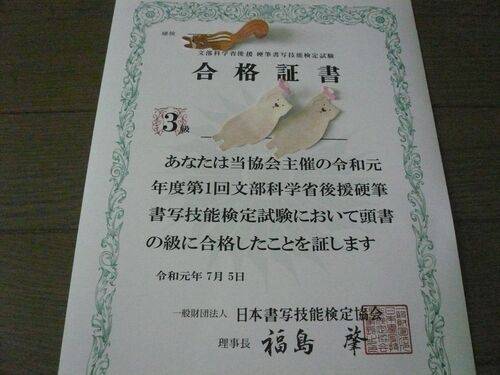 硬筆
文部科学省後援 硬筆書写技能検定試験
合格証書
3級
あなたは当協会主催の令和元
年度第1回文部科学省後援硬筆
書写技能検定試験において頭書
の級に合格したことを証します
令和元年7月5日
一般財団法人 日本書写技能検定協会
理事長 福島 肇